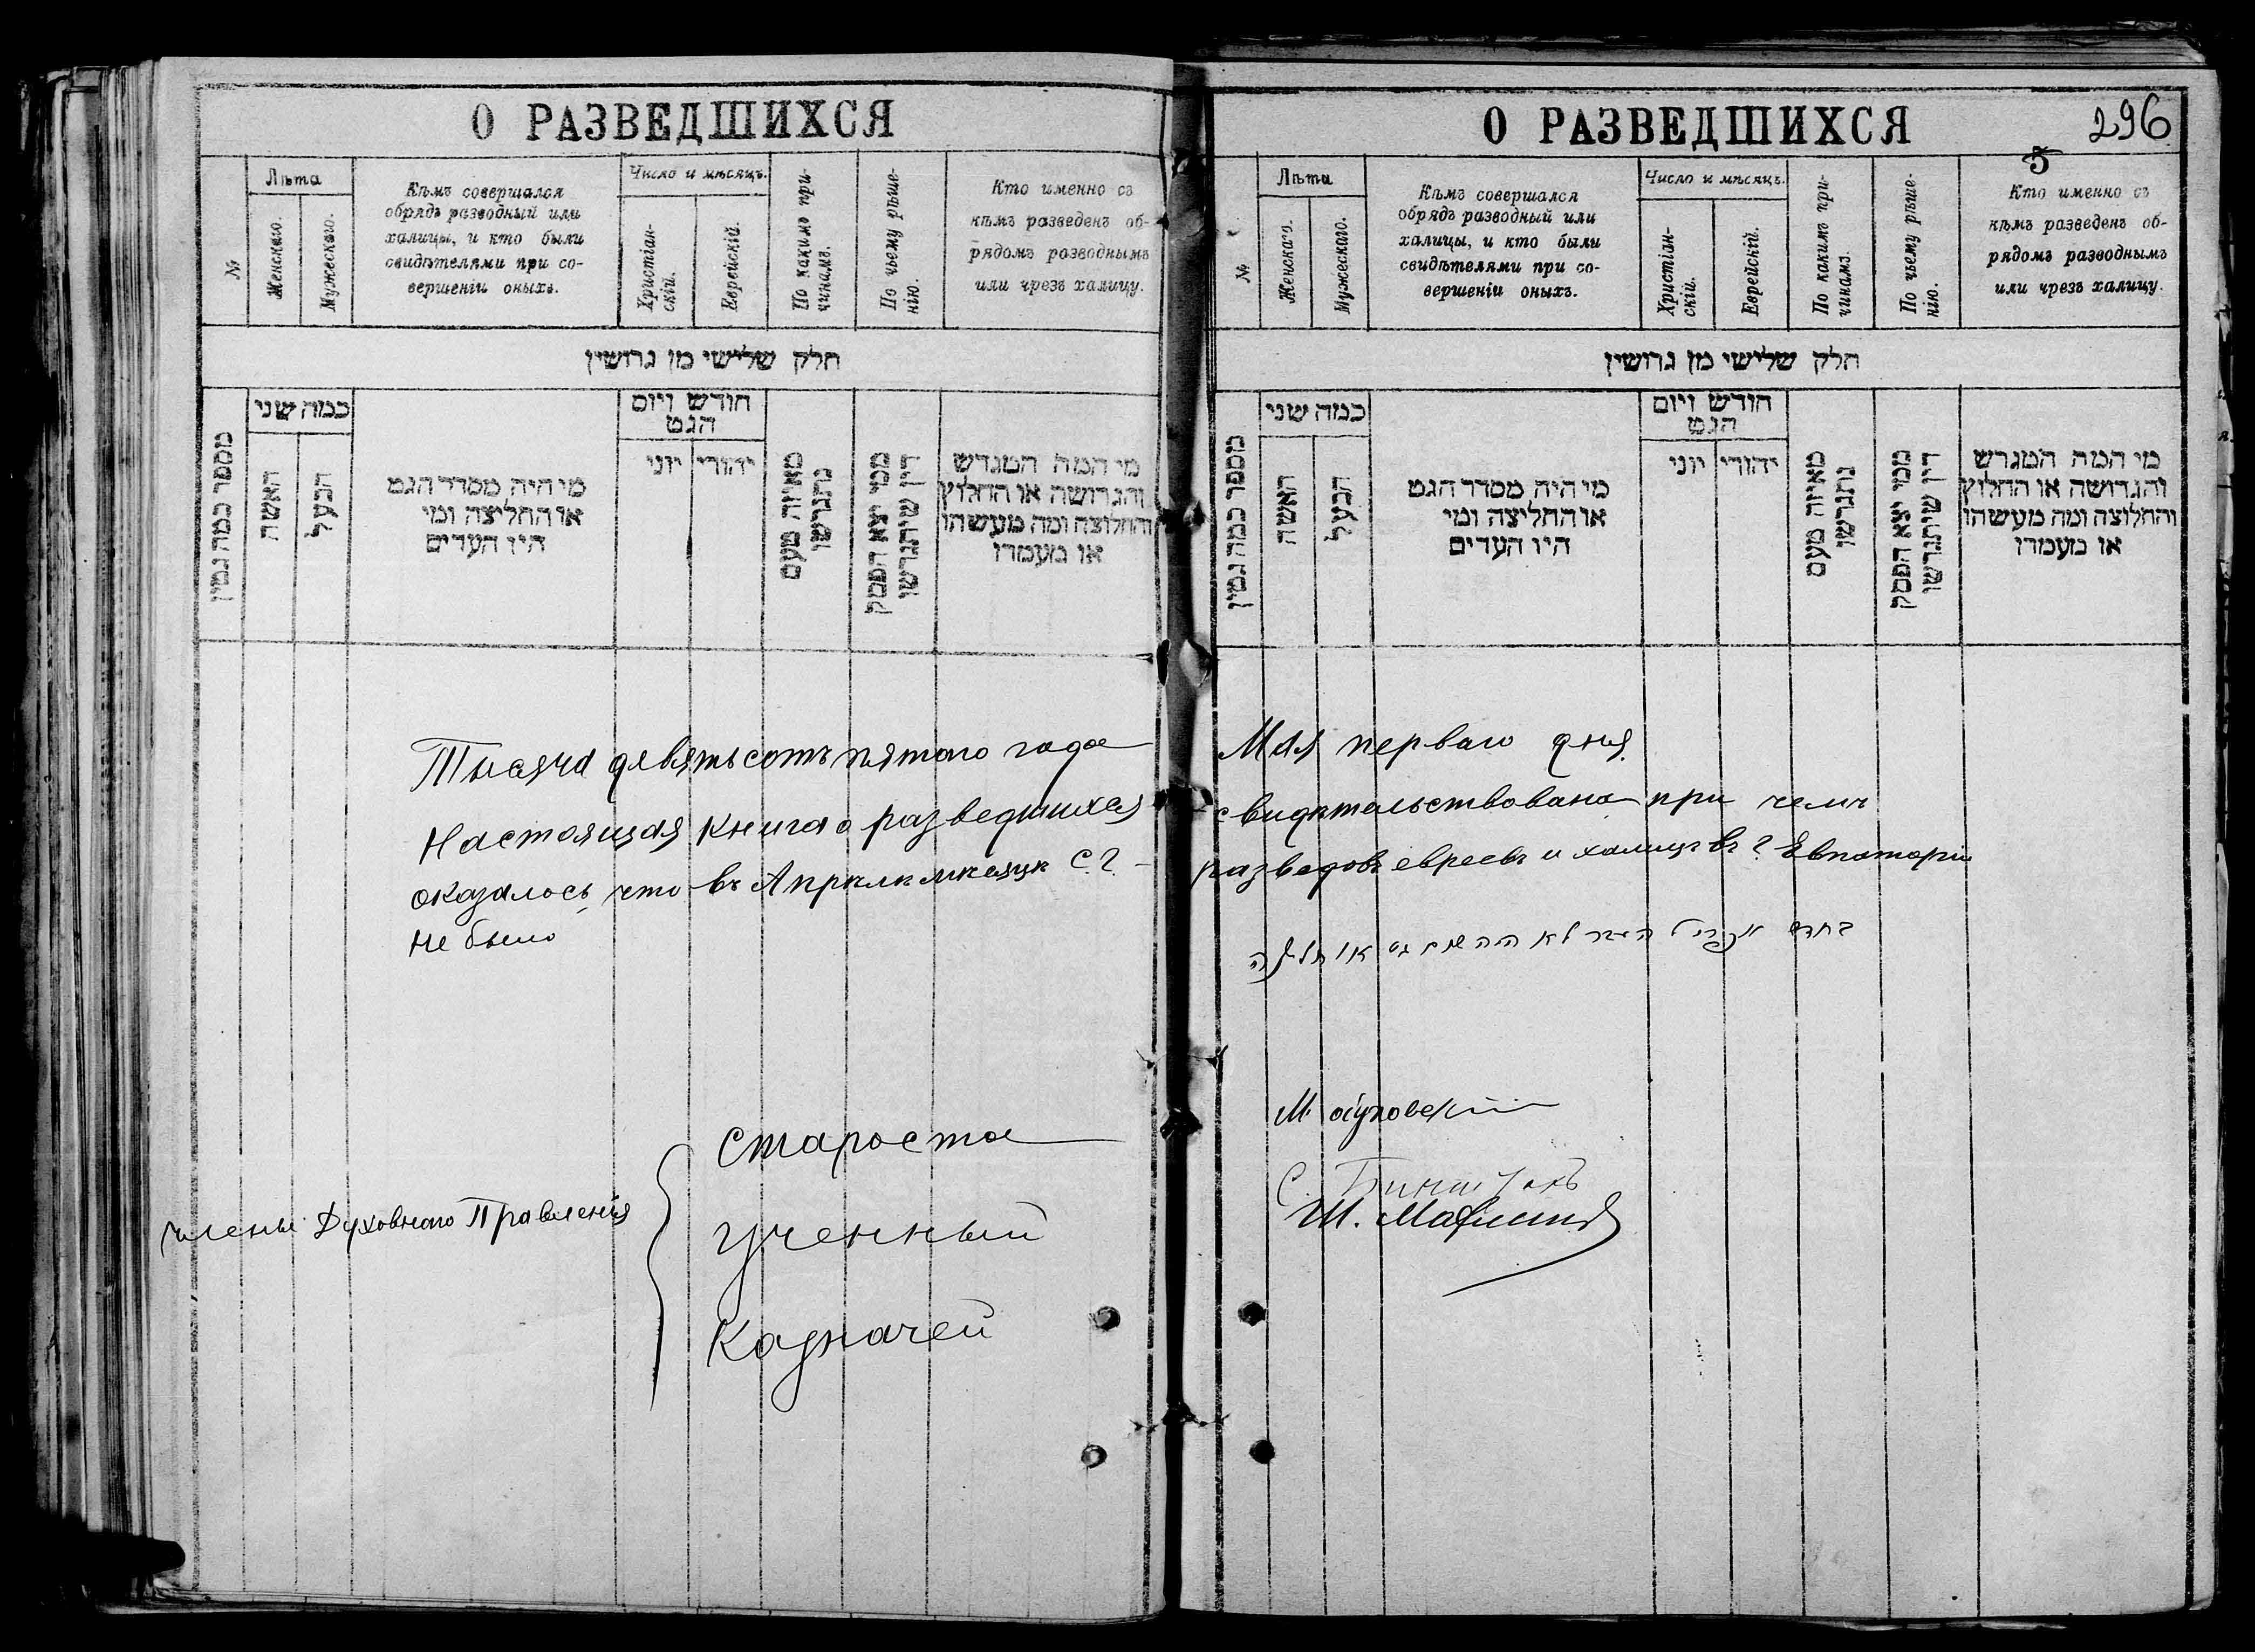 О РАЗВЕДШИХСЯ
№
Лѣта
Женскаго.
Мужескаго.
Кѣмъ совершался
обрядъ разводный или
халицы, и кто были
свидѣтелями при со-
вершеніи оныхъ.
Число и мѣсяцъ.
Христіан-
скій.
Еврейскій.
По какимъ при-
чинамъ.
По чьему рѣше-
нію.
Кто именно съ
кѣмъ разведенъ об-
рядомъ разводнымъ
или чрезъ халицу.
חלק שלישי מן גרושין
מספר כמה גטין
כמה שני
האשה
הבעל
מי היה מסדר הגט
או החליצה ומי
היו העדים
חודש ויום
הגט
יהודי
יוני
מאיזה טעם
נתגרשו
ממי יצא הפסק
דין שיתגרשו
מי המה המגרש
והגרושה או החלוץ
והחלוצה ומה מעשהו
או מעמדו
Тысяча девятьсотъ пятого года
Настоящая книга о разведшихся
оказалось, что въ Апрѣлѣ мѣсяцѣ с. г.
не было
Члены Духовнаго Правленія
Староста
Ученный
Казначей
О РАЗВЕДШИХСЯ
296
5
№
Лѣта
Женскаго.
Мужескаго.
Кѣмъ совершался
обрядъ разводный или
халицы, и кто были
свидѣтелями при со-
вершеніи оныхъ.
Число и мѣсяцъ.
Христіан-
скій.
Еврейскій.
По какимъ при-
чинамъ.
По чьему рѣше-
нію.
Кто именно съ
кѣмъ разведенъ об-
рядомъ разводнымъ
или чрезъ халицу.
חלק שלישי מן גרושין
מספר כמה גטין
כמה שני
האשה
הבעל
מי היה מסדר הגט
או החליצה ומי
היו העדים
חודש ויום
הגט
יהודי
יוני
מאיזה טעם
נתגרשו
ממי יצא הפסק
דין שיתגרשו
מי המה המגרש
והגרושה או החלוץ
והחלוצה ומה מעשהו
או מעמדו
Мая перваго дня
свидѣтельствована при чемъ
разводовъ евреевъ и халицъ въ г. Евпаторіи
בחדש אפריל לא היה גט או חליצה
М.
С.
Ш.